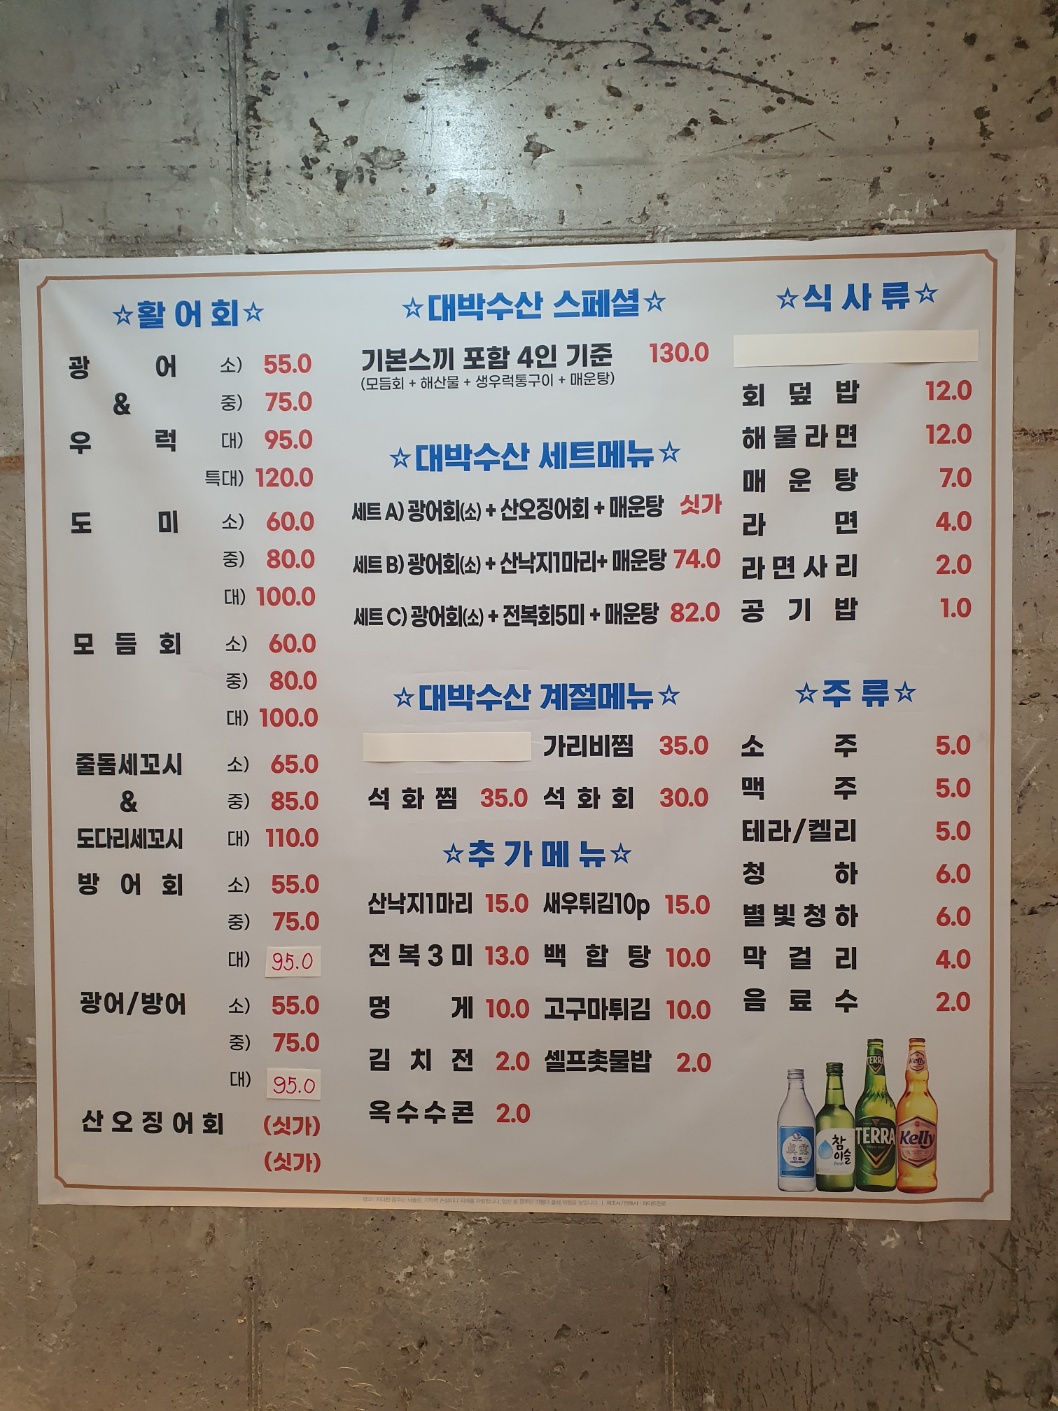 ☆활어회☆
광어 소) 55.0
& 중) 75.0
우럭 대) 95.0
특대) 120.0
도미 소) 60.0
중) 80.0
대) 100.0
모듬회 소) 60.0
중) 80.0
대) 100.0
줄돔세꼬시 소) 65.0
& 중) 85.0
도다리세꼬시 대) 110.0
방어회 소) 55.0
중) 75.0
대) 95.0
광어/방어 소) 55.0
중) 75.0
대) 95.0
산오징어회 (싯가)
(싯가)
☆대박수산 스페셜☆
기본스끼 포함 4인 기준 130.0
(모듬회 + 해산물 + 생우럭통구이 + 매운탕)
☆대박수산 세트메뉴☆
세트 A) 광어회(소) + 산오징어회 + 매운탕 싯가
세트 B) 광어회(소) + 산낙지1마리+ 매운탕 74.0
세트 C) 광어회(소) + 전복회5미 + 매운탕 82.0
☆대박수산 계절메뉴☆
가리비찜 35.0
석화찜 35.0 석화회 30.0
☆추가메뉴☆
산낙지1마리 15.0 새우튀김10p 15.0
전복3미 13.0 백합탕 10.0
멍게 10.0 고구마튀김 10.0
김치전 2.0 셀프촛물밥 2.0
옥수수콘 2.0
☆식사류☆
회덮밥 12.0
해물라면 12.0
매운탕 7.0
라면 4.0
라면사리 2.0
공기밥 1.0
☆주류☆
소주 5.0
맥주 5.0
테라/켈리 5.0
청하 6.0
별빛청하 6.0
막걸리 4.0
음료수 2.0
참이슬
TERRA
TERRA
Kelly
Kelly